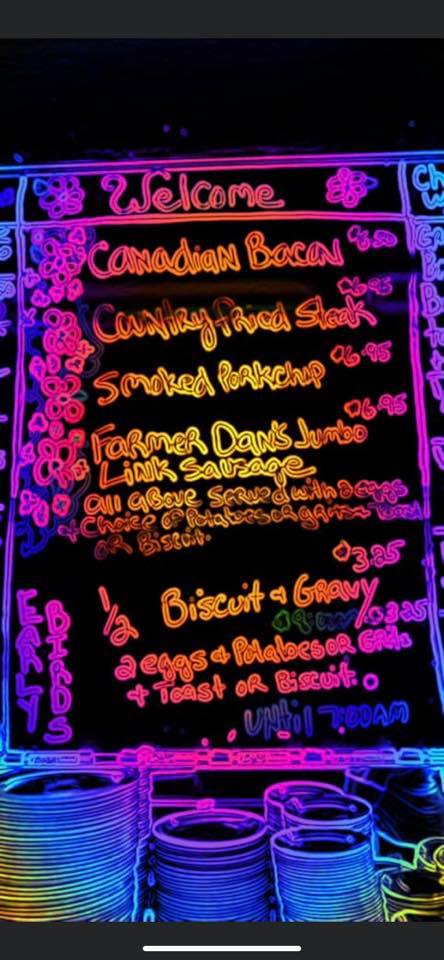 Welcome
Canadian Bacon
Country Fried Steak
$6.95
Smoked Porkchop
$6.95
Farmer Dan's Jumbo
Link Sausage
all above served with 2 eggs
+ choice of Potatoes or
or Biscuit
$3.25
1/2 Biscuit & Gravy
3.25
2 eggs & Potatoes or Grits
+ Toast or Biscuit
Early
Birds
Until 7:00AM